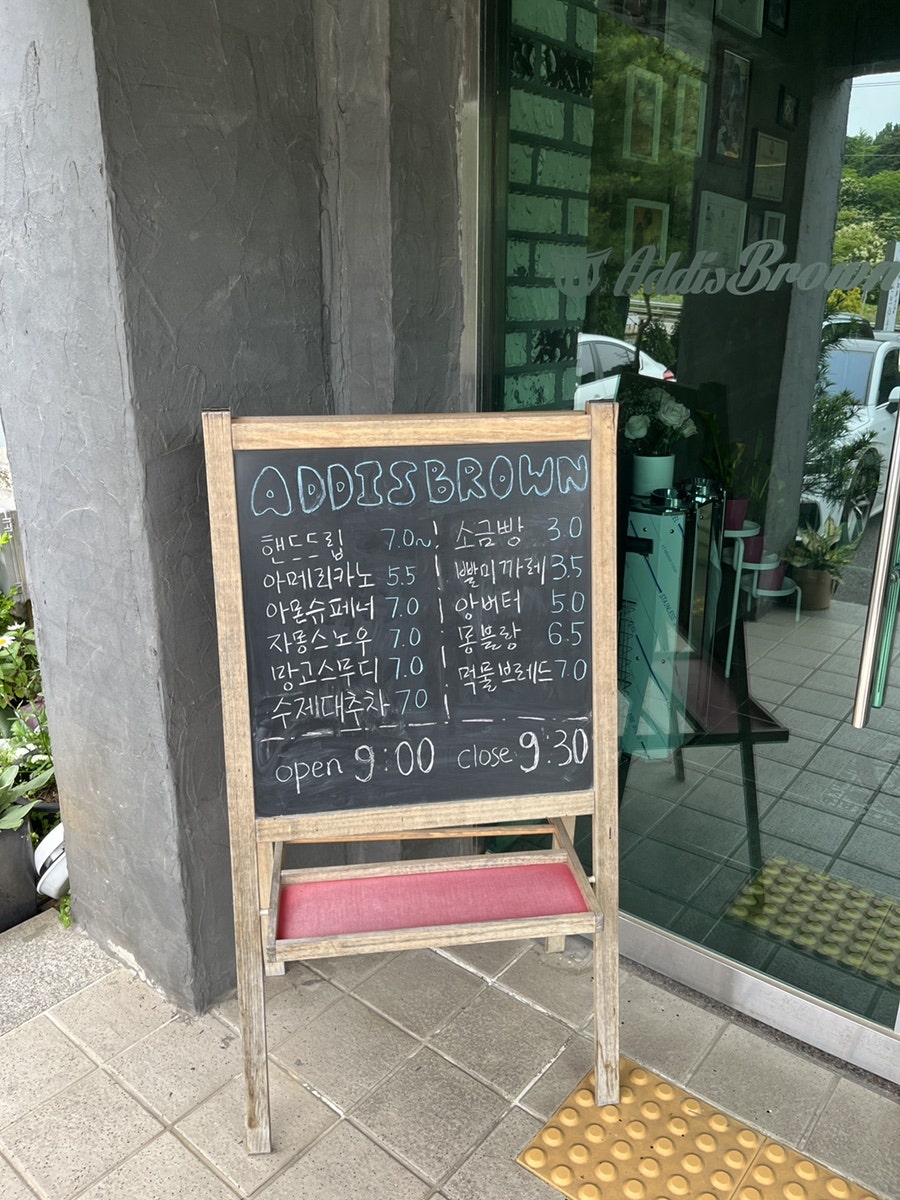 AddisBrown
ADDISBROWN
핸드드립 7.0~
아메리카노 5.5
아몬슈페너 7.0
자몽스노우 7.0
망고스무디 7.0
수제대추차 7.0
소금빵 3.0
빨미까레 3.5
앙버터 5.0
몽블랑 6.5
먹물브레드 7.0
open 9:00 close 9:30